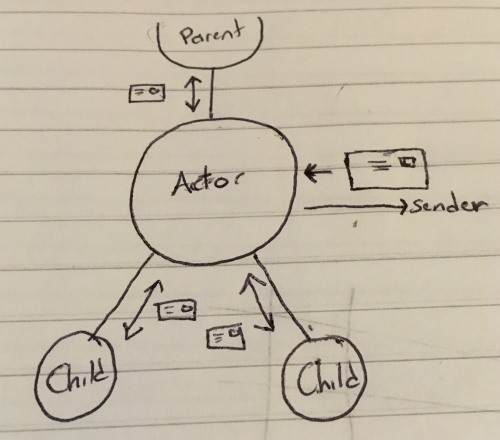 Parent
Actor
Sender
Child
Child